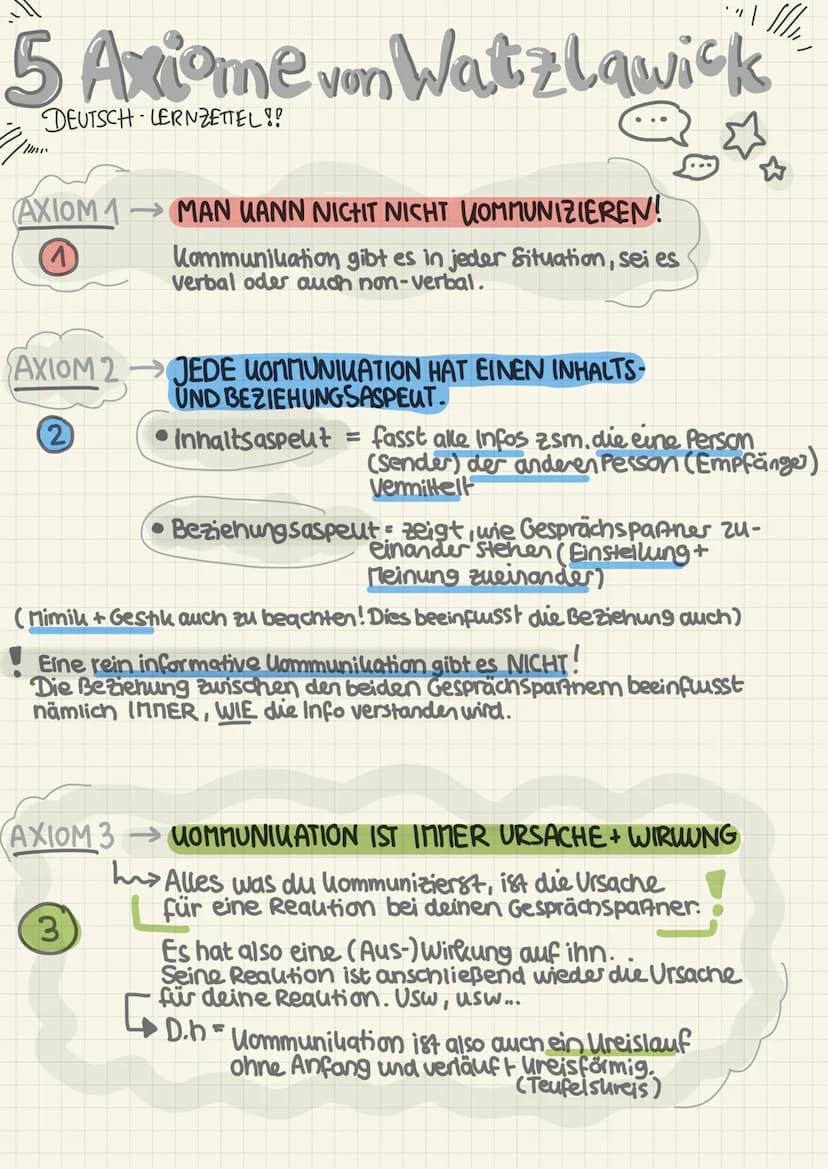 5 Axiome von Watzlawick
DEUTSCH - LERNZETTEL!!
AXIOM 1 → MAN KANN NICHT NICHT KOMMUNIZIEREN!
1
Kommunikation gibt es in jeder Situation, sei es
verbal oder auch non-verbal.
AXIOM 2 → JEDE KOMMUNIKATION HAT EINEN INHALTS-
UND BEZIEHUNGSASPEKT.
2
• Inhaltsaspekt = fasst alle Infos zsm. die eine Person
(Sender) der anderen Person (Empfänger)
vermittelt
• Beziehungsaspekt = zeigt, wie Gesprächspartner zu-
einander stehen (Einstellung +
Meinung zueinander)
(Mimik + Gestik auch zu beachten! Dies beeinflusst die Beziehung auch)
! Eine rein informative Kommunikation gibt es NICHT!
Die Beziehung zwischen den beiden Gesprächspartnern beeinflusst
nämlich IMMER, WIE die Info verstanden wird.
AXIOM 3 → KOMMUNIKATION IST IMMER URSACHE + WIRKUNG
3
Alles was du kommunizierst, ist die Ursache
für eine Reaktion bei deinen Gesprächspartner. !
Es hat also eine (Aus-)Wirkung auf ihn.
Seine Reaktion ist anschließend wieder die Ursache
für deine Reaktion. Usw, usw...
D.h = Kommunikation ist also auch ein Kreislauf
ohne Anfang und verläuft kreisförmig.
(Teufelskreis)